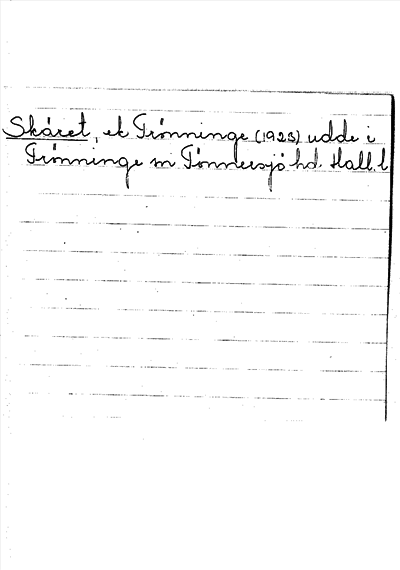 Skåret, ek Trönninge (1923) udde i
Trönninge sn Tönnersjö hd. Hall. l